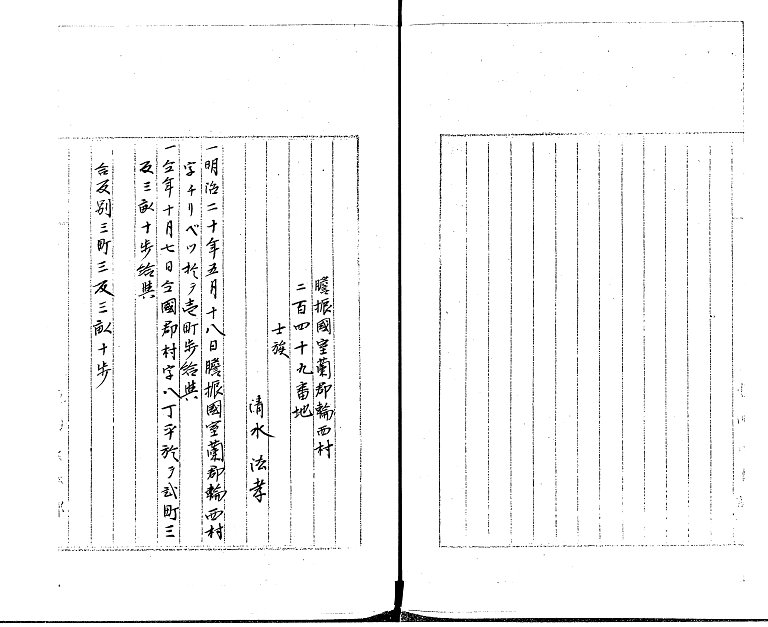 膽振國室蘭郡輪西村
二百四十九番地
士族
清水 法孝
一明治二十年五月十八日膽振國室蘭郡輪西村
字チリベツ於テ壱町歩給與
一仝年十月七日仝國郡村字八丁平於テ弐町三
反三畝十歩給與
合反別三町三反三畝十歩